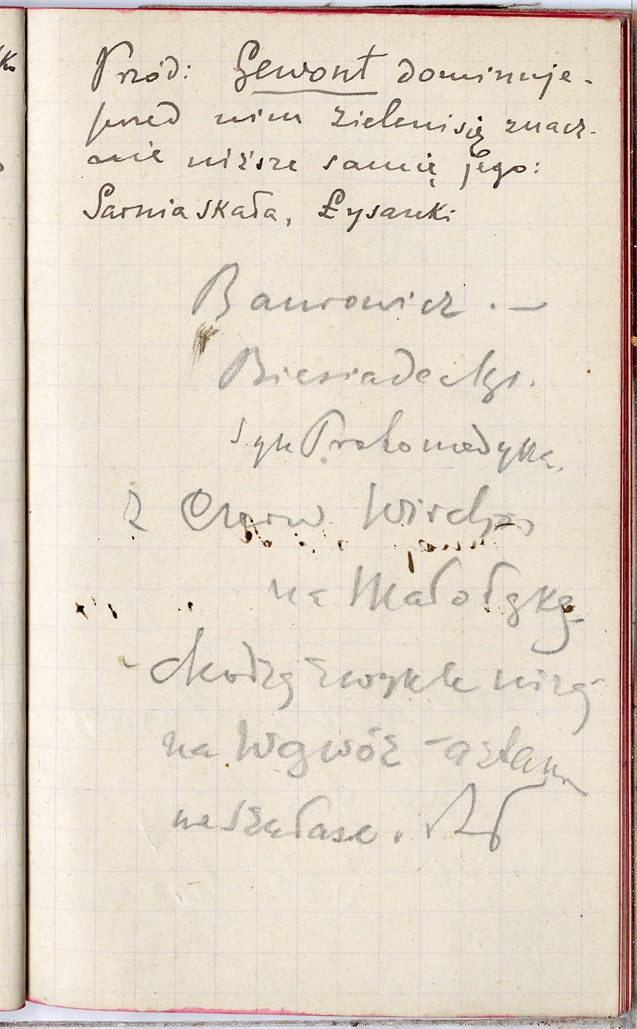 Przód: Gewont dominuje -
przed nim zieleni się znacz-
nie niższe samię jego:
Sarnia skała, Łysanki
Baurowicz . —
Biesiadecki.
Syn Protomedyka.
Z Czerw Wirchów
na Małołąkę
chodzą zwykle niżą
na Wąwóz - a stam
na Szałase.